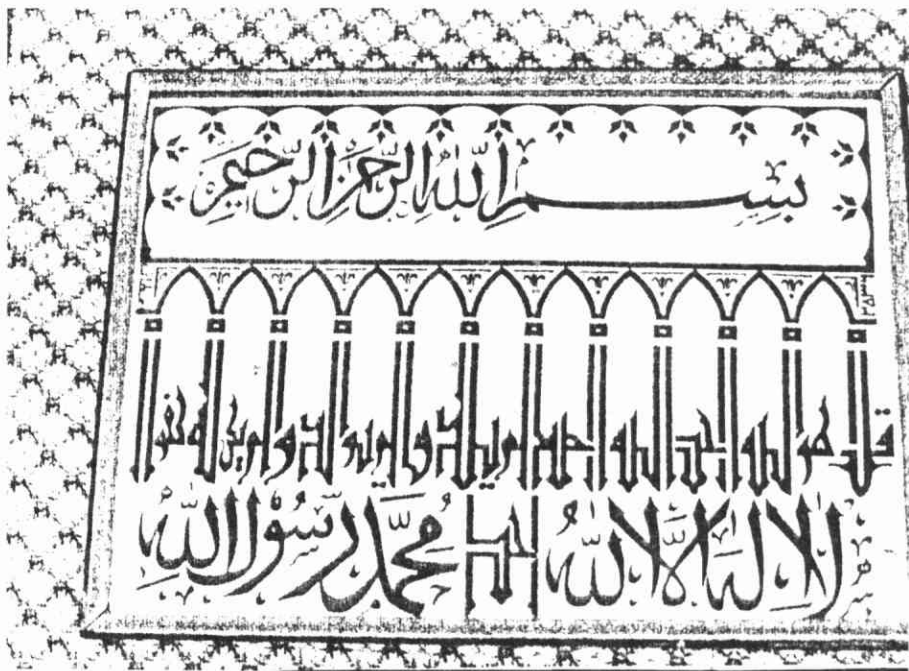 بِسْمِ اللّٰهِ الرَّحْمٰنِ الرَّحِيمِ
قل هو الله احد الله الصمد لم يلد ولم يولد ولم يكن له كفوا
لا اِلٰهَ اِلَّا اللّٰهُ احد مُحَمَّدٌ رَسُوْلُ اللّٰهِ